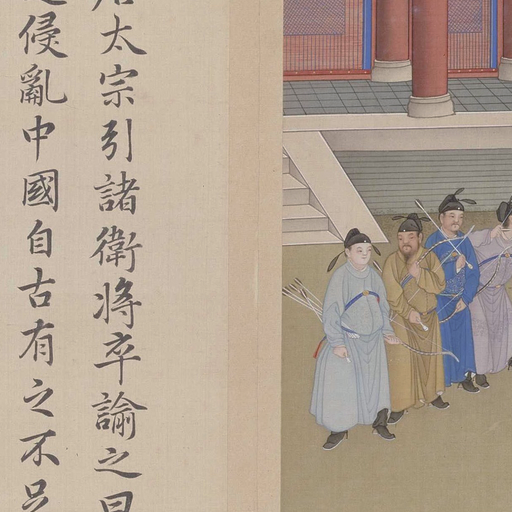 唐太宗引諸衛將卒諭之曰
侵亂中國自古有之不足